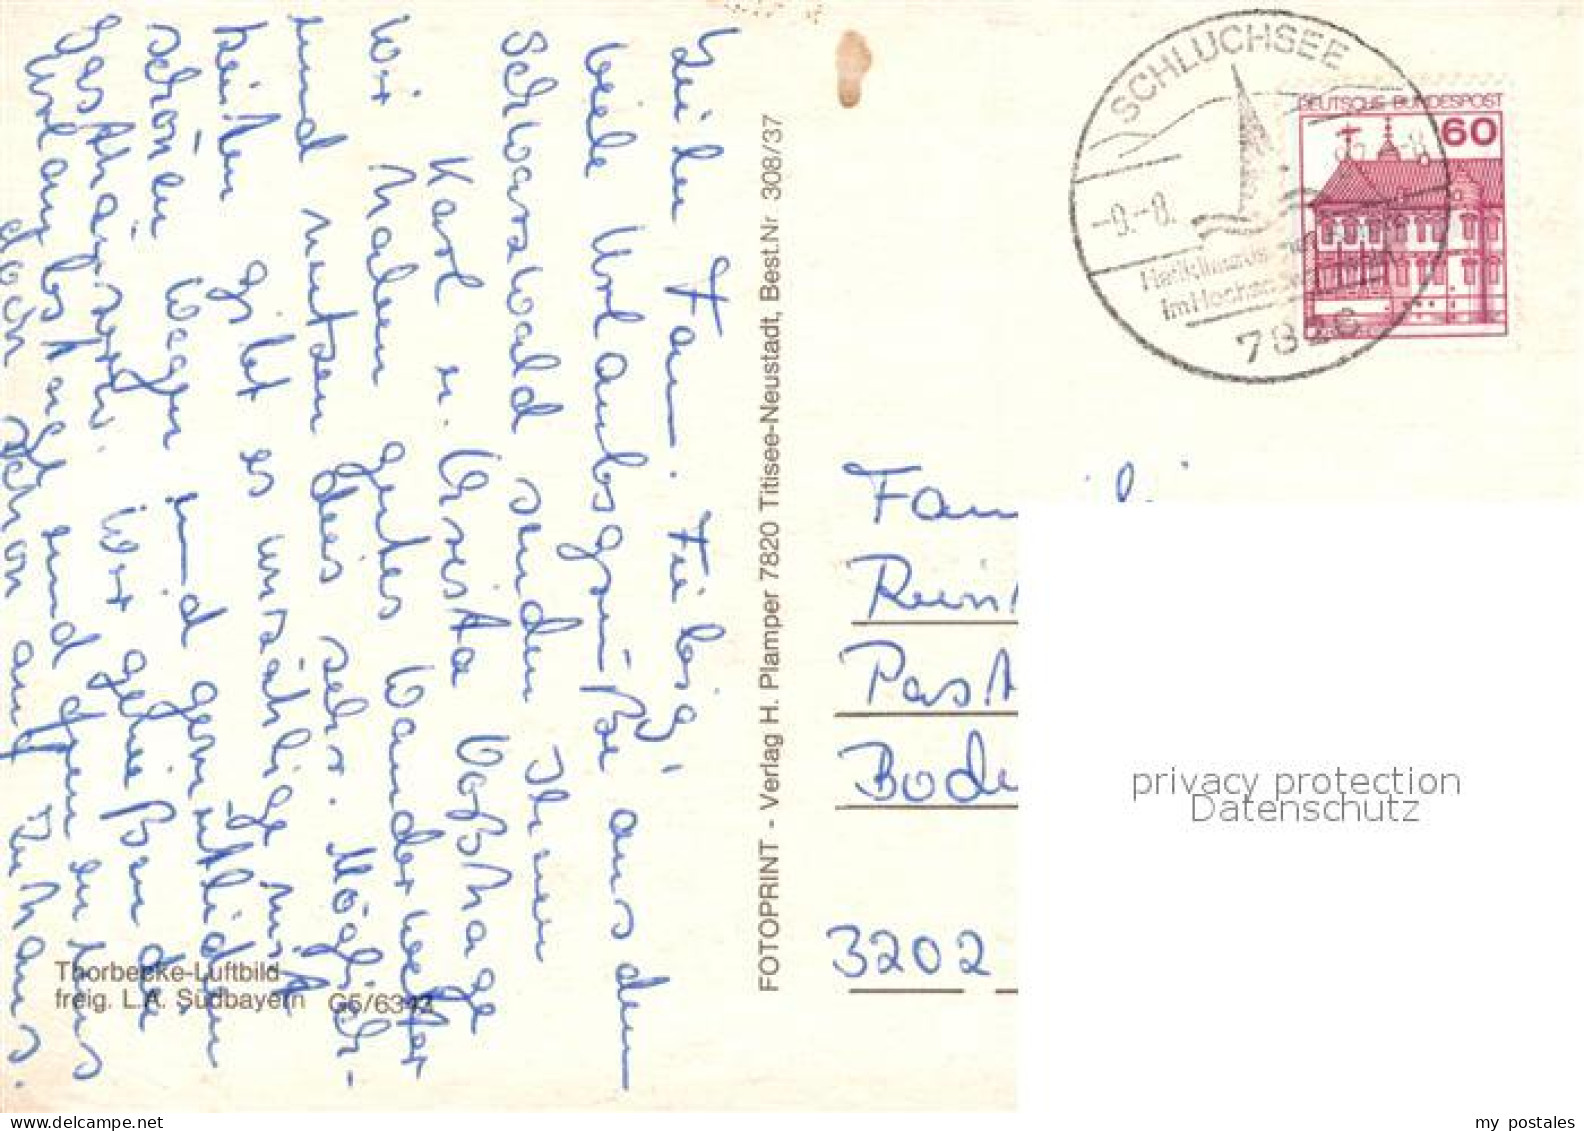 Liebe Fam. Fiebig,
viele Urlaubsgrüße aus dem
Schwarzwald senden Ihnen
Karl u. Christa Voßhage
Wir haben gutes Wanderwetter
und nutzen dies sehr. Möglich-
keiten gibt es unzählige mit
schönen Wegen und gemütlichen
Gasthäusern. Wir genießen die
Urlaubstage und freuen uns
doch schon auf Zuhaus.
Thorbecke-Luftbild
freig. L.A. Südbayern G5/6343
FOTOPRINT - Verlag H. Plamper 7820 Titisee-Neustadt, Best.Nr. 308/37
SCHLUCHSEE
-9.-8.
Im Hochsch
7826
DEUTSCHE BUNDESPOST
60
Fam
Rein
Past
Bode
3202
privacy protection
Datenschutz
my postales